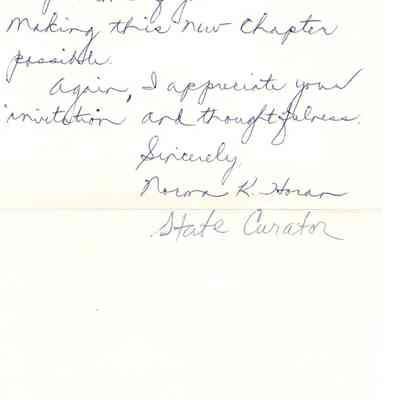 Making this new Chapter
possible.
Again, I appreciate your
invitation and thoughtfulness.
Sincerely,
Norma K. Horan
State Curator